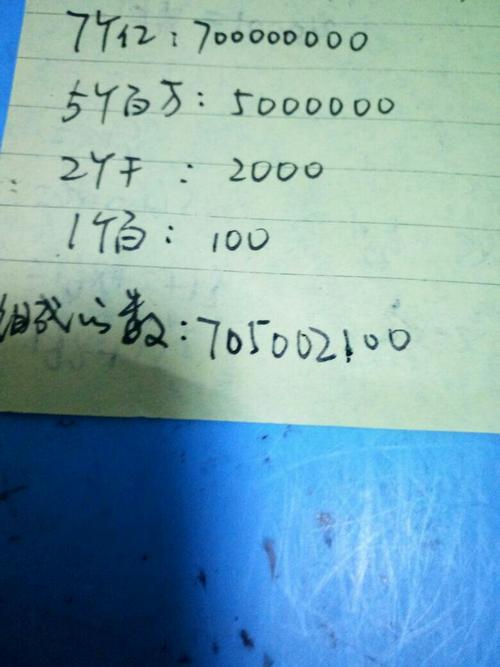 7个亿:700000000
5个百万:5000000
2个千:2000
1个百:100
组成的数:705002100